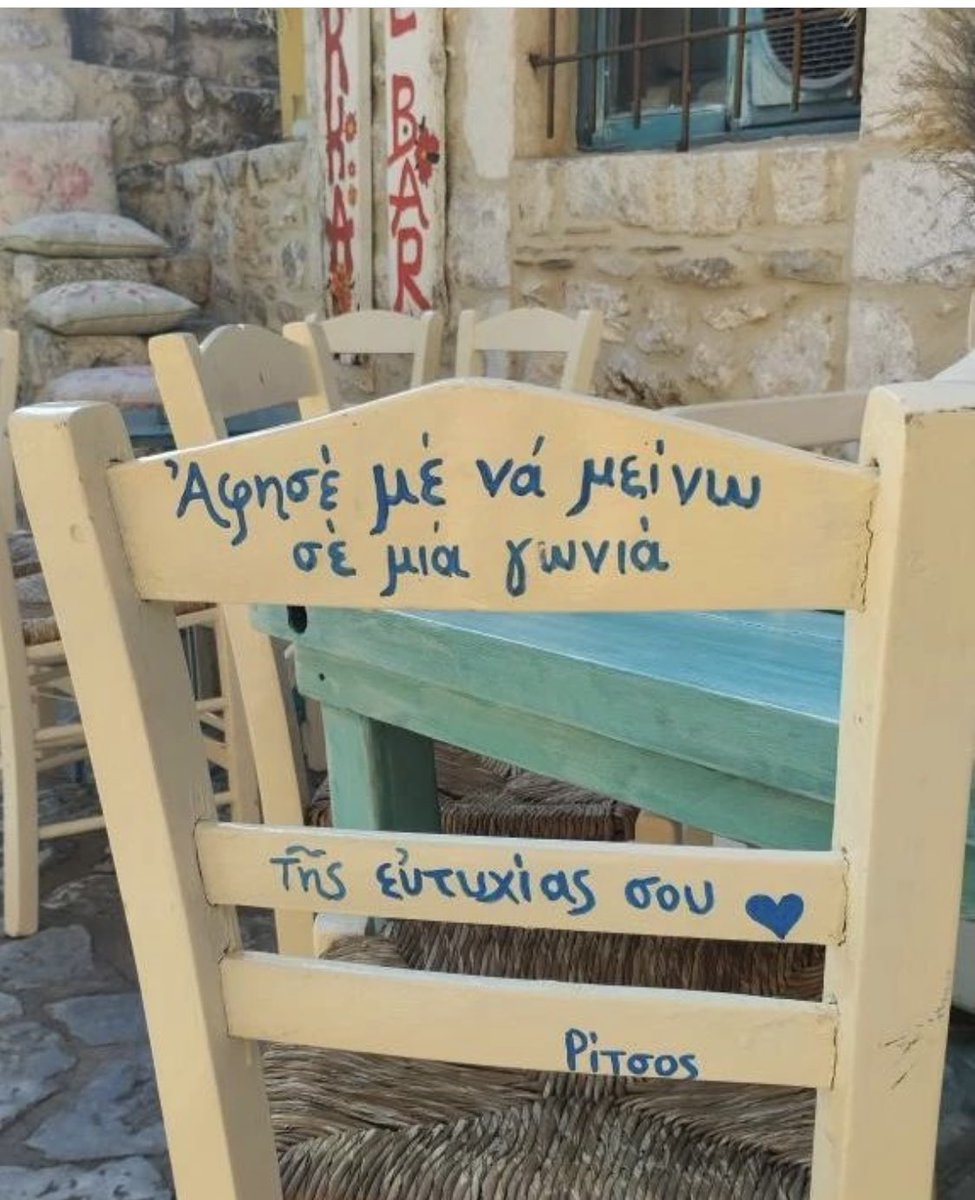 BAR
Ἄφησέ μέ νά μείνω
σὲ μιά γωνιὰ
τῆς εὐτυχίας σου
Ρίτσος